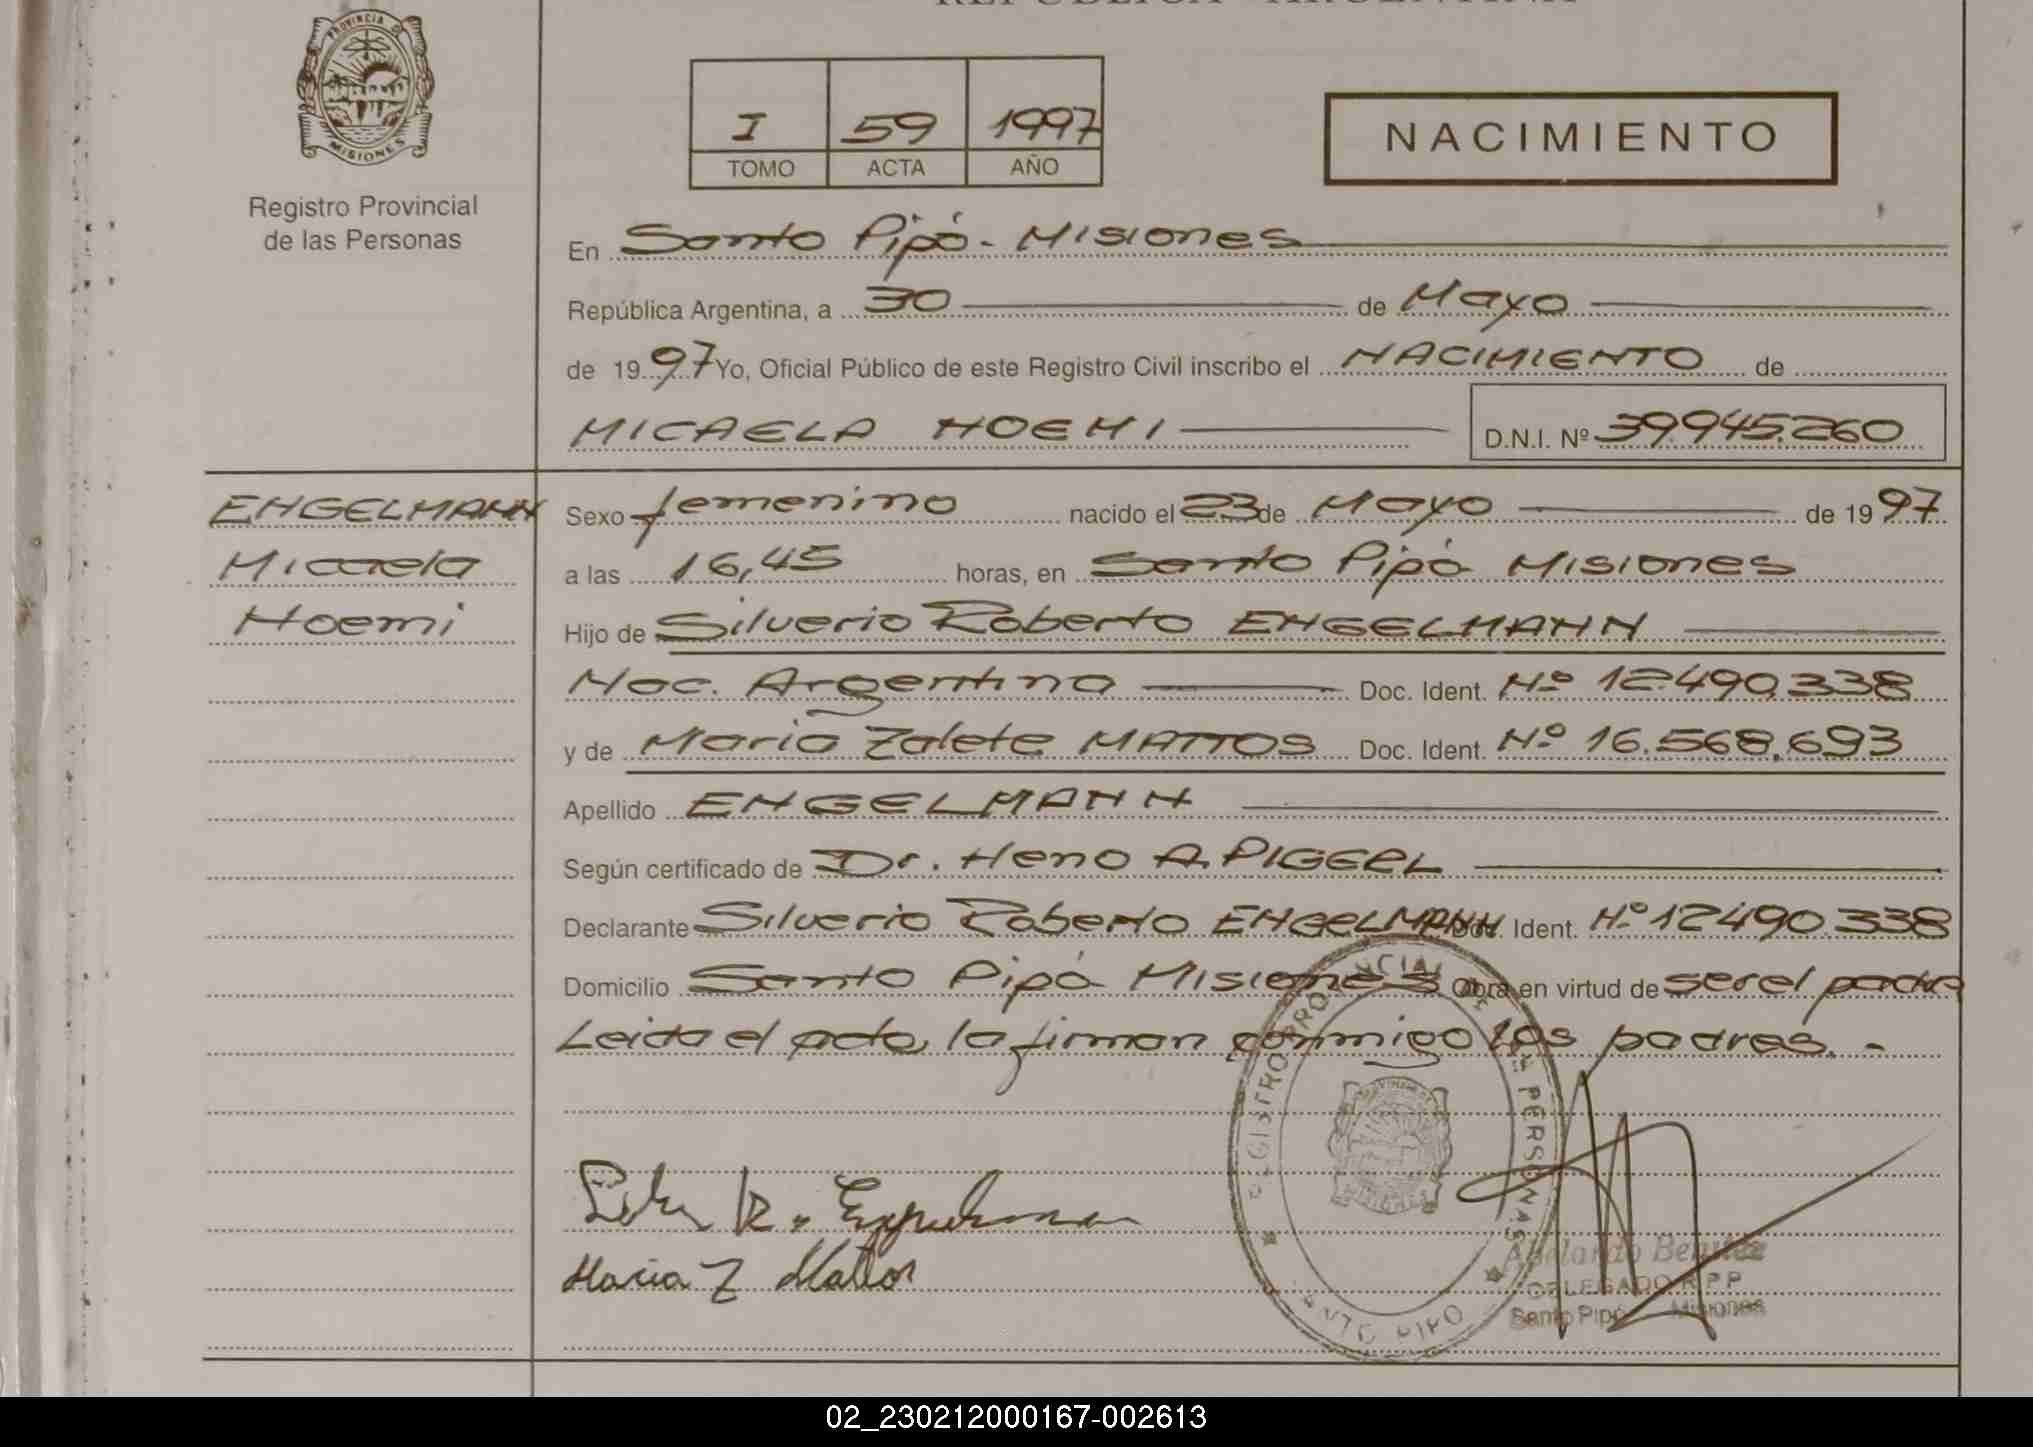 REPUBLICA ARGENTINA
PROVINCIA DE
MISIONES
Registro Provincial
de las Personas
I 59 1997
TOMO ACTA AÑO
NACIMIENTO
En Santo Pipó - Misiones
República Argentina, a 30 de Mayo
de 1997 Yo, Oficial Público de este Registro Civil inscribo el NACIMIENTO de
MICAELA NOEMI D.N.I. Nº 39.945.260
ENGELMANN
Micaela
Noemi
Sexo femenino nacido el 23 de Mayo de 1997
a las 16,45 horas, en Santo Pipó Misiones
Hijo de Silverio Roberto ENGELMANN
Nac. Argentina Doc. Ident. Nº 12.490.338
y de Maria Zalete MATTOS Doc. Ident. Nº 16.568.693
Apellido ENGELMANN
Según certificado de Dr. Heno A. PIGERL
Declarante Silverio Roberto ENGELMANN Doc. Ident. Nº 12490.338
Domicilio Santo Pipó Misiones Obra en virtud de ser el padre
Leida el acta, la firman conmigo los padres. -
REGISTRO PROVINCIAL DE LAS PERSONAS
SANTO PIPO
Maria Z Mattos
Abelardo Benitez
DELEGADO R.P.P.
Santo Pipó Misiones
02_230212000167-002613